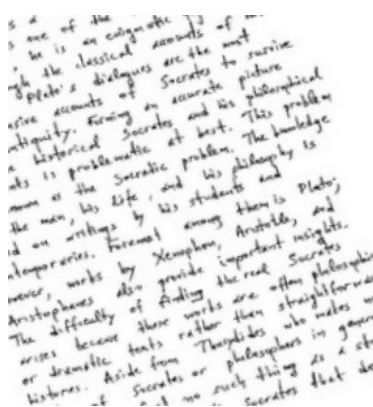 one of the
he is an enigmatic
the classical accounts of
Plato's dialogues are the most
accounts of Socrates to survive
antiquity. Forming an accurate picture
historical Socrates and his philosophical
is problematic at best. This problem
as the Socratic problem. The knowledge
the man, his life, and his philosophy is
on writings by his students and
contemporaries. Foremost among them is Plato;
works by Xenophon, Aristotle, and
Aristophanes also provide important insights.
The difficulty of finding the real Socrates
arises because these works are often
or dramatic texts rather than
histories. Aside from Thusdides who makes
of Socrates or philosophers in
no such thing as a
Socrates that